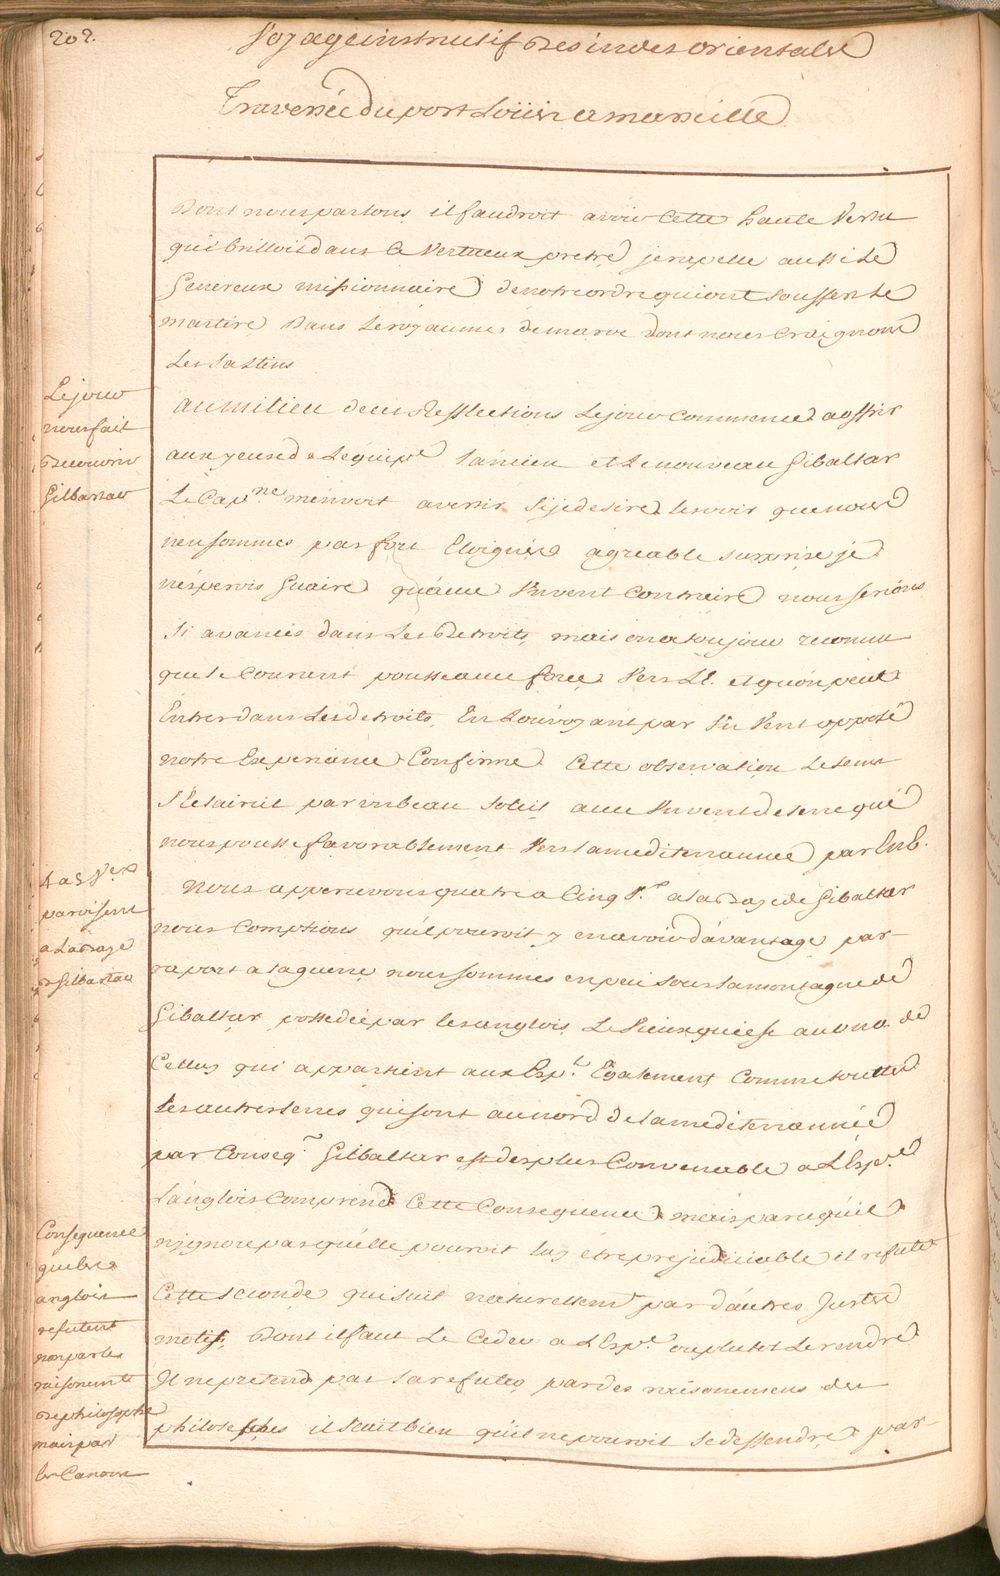 202.
Voyage instructif des indes orientales
Traversée du port Loüis a marseille
Dont nous parlons il faudroit avoir cette haute Vertu
qui brilloit dans ce Vertueux pretre je rapelle aussi le
Genereux missionnaire de notre ordre qui ont souffert le
martire Dans le royaume de maroc dont nous craignons
Les saltins
Le jour
nous fait
Decouvrir
Gilbartar
au milieu de ces Resflections Le jour commence a offrir
aux yeux de Léquipe lancien et le nouveau Gibaltar
Le Cap.ne m'envoit avertir si je desire les voir que nous
n'en sommes pas fort Eloignés agreable surprise je
n'esperois Guaire quâvec Un vent Contraire nous serions
Si avancés dans Les Detroits, mais on a toujour reconnu
que le Courent pousse avec force Vers L'E. et qu'on peut
Entrer dans Les detroits, En Louvoyant par Un Vent opposé
notre Experiance Confirme Cette observation Le tems
S'Eclaircit par un beau Soleil avec Un vent de terre qui
nous pousse favorablement Vers la mediterrannée par
4 a 5 V.x
paroissent
a La Baye
de Gilbartar
Nous appercevons quatre a Cinq V. a la Baye de Gibaltar
nous Comptions qu'il pouroit y en avoir davantage par-
raport a la guerre nous sommes en paix sous la montagne de
Gibaltar possedée par les anglois, Le Vieux qui est au de
Celluy qui appartient aux Esp.l Egalement Comme touttes
Les autres terres qui sont au nord de la mediterrannée
par Conseq.t Gilbaltar est des plus Convenable a L'Esp.e
L'anglois Comprend Cette Consequence mais parcequ'il
n'ignore pas qu'elle pouroit luy etre prejudiciable il refute
Consequence
que les
anglois
refutent
non par les
raisonem.ts
de philosophe
mais par
les Canons
Cette seconde qui suit naturellem.t par d'autres Justes
motifs, Dont il faut Le Ceder a L'Esp.e ou plutot Le rendre
Il ne pretend pas La refuter par des raisonemens de
philosophes il scait bien qu'il ne pouroit se deffendre par-